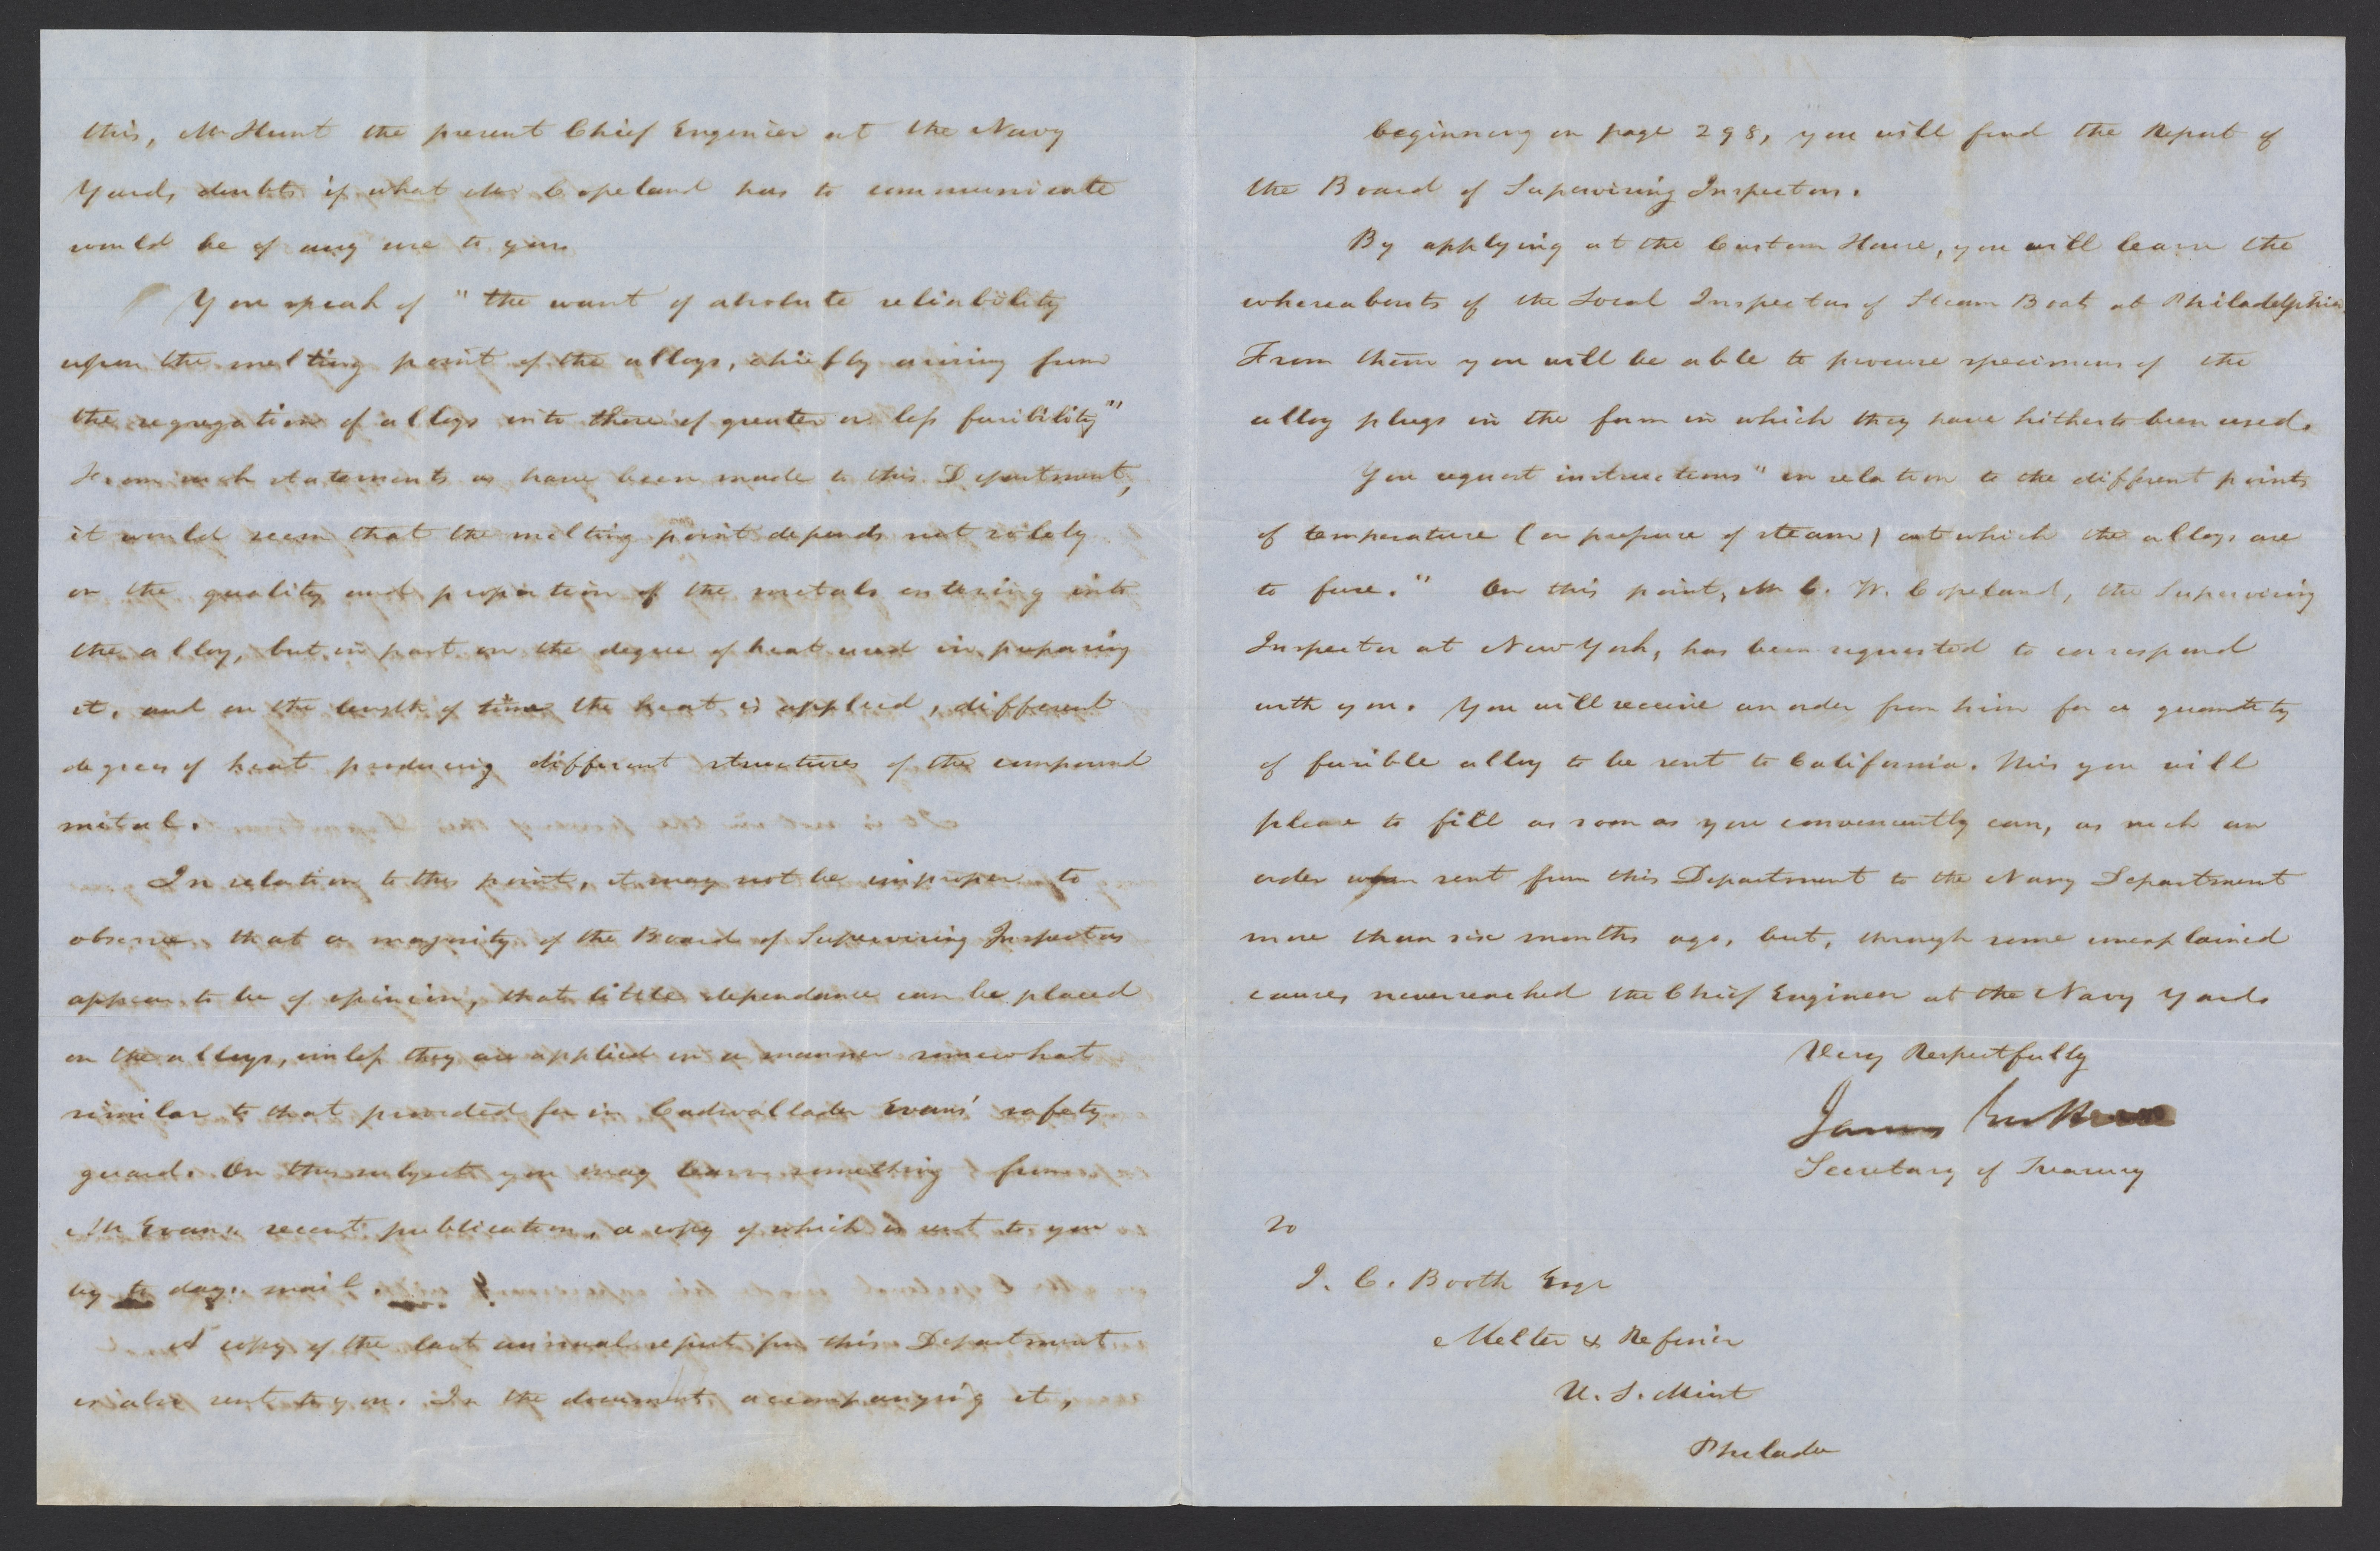 this, Mr Hunt the present Chief Engineer at the Navy
Yard, doubts if what Mr Copeland has to communicate
would be of any use to you.
You speak of "the want of absolute reliability
upon the melting point of the alloys, chiefly arising from
the segregation of alloys into those of greater or less fusibility"
From such statements as have been made to this Department,
it would seem that the melting point depends not solely
on the quality and proportion of the metals entering into
the alloy, but in part on the degree of heat used in preparing
it, and on the length of time the heat is applied, different
degrees of heat producing different structures of the compound
metal.
In relation to this point, it may not be improper to
observe that a majority of the Board of Supervising Inspectors
appear to be of opinion, that little dependance can be placed
on the alloys, unless they are applied in a manner somewhat
similar to that provided for in Cadwallader Evans' safety
guard. On this subject you may learn something from
Mr Evans recent publication, a copy of which is sent to you
by to days mail.
A copy of the last annual report from this Department
is also sent to you. In the document accompanying it,
beginning on page 298, you will find the Report of
the Board of Supervising Inspectors.
By applying at the Custom House, you will learn the
whereabouts of the Local Inspectors of Steam Boats at Philadelphia
From them you will be able to procure specimens of the
alloy plugs in the form in which they have hitherto been used.
You request instructions "in relation to the different points
of temperature (or pressure of steam) at which the alloys are
to fuse." On this point, Mr C. W. Copeland, the Supervising
Inspector at New York, has been requested to correspond
with you. You will receive an order from him for a quantity
of fusible alloy to be sent to California. This you will
please to fill as soon as you conveniently can, as such an
order was sent from this Department to the Navy Department
more than six months ago, but, through some unexplained
causes, never reached the Chief Engineer at the Navy Yard.
Very Respectfully
James Guthrie
Secretary of Treasury
To
J. C. Booth Esqr
Melter & Refiner
U. S. Mint
Philada